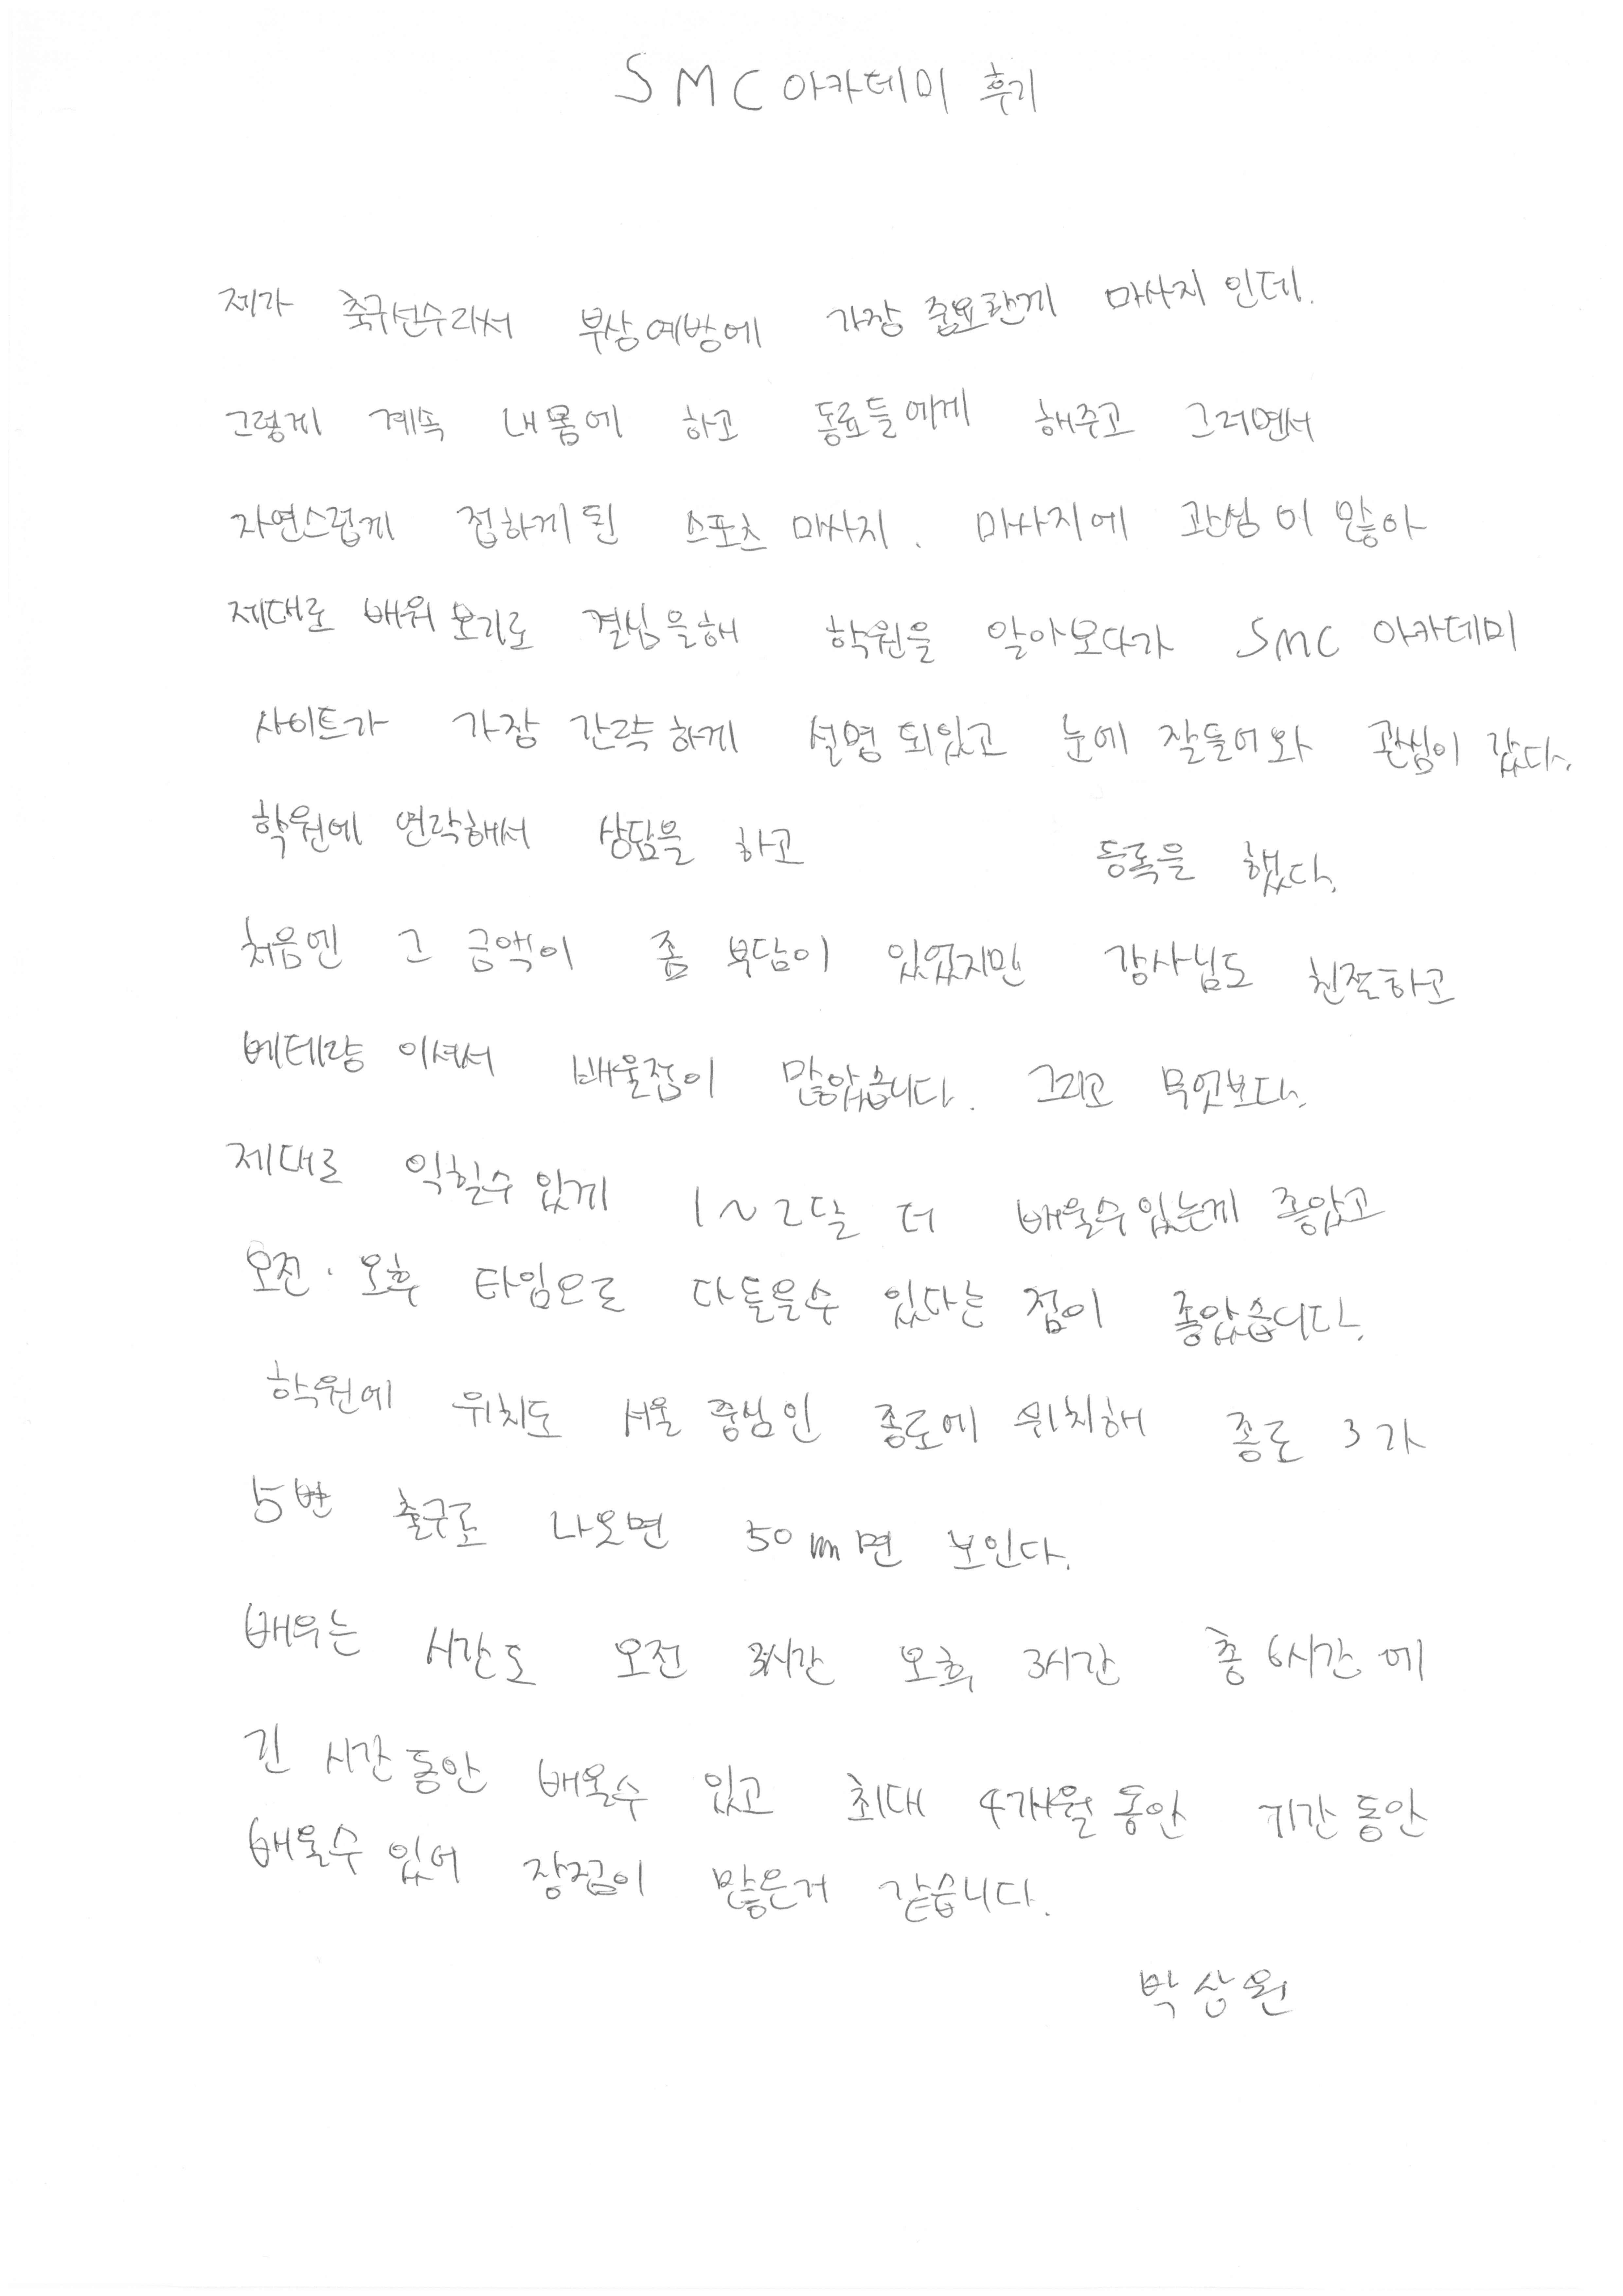 SMC 아카데미 후기
제가 축구선수라서 부상예방에 가장 중요한게 마사지 인데.
그렇게 계속 내몸에 하고 동료들에게 해주고 그러면서
자연스럽게 접하게된 스포츠 마사지. 마사지에 관심이 많아
제대로 배워 보기로 결심을해 학원을 알아보다가 SMC 아카데미
사이트가 가장 간략하게 설명 되있고 눈에 잘들어와 관심이 갔다.
학원에 연락해서 상담을 하고 등록을 했다.
처음엔 그 금액이 좀 부담이 있었지만 강사님도 친절하고
베테랑 이셔서 배울점이 많았습니다. 그리고 무엇보다.
제대로 익힐수있게 1~2달 더 배울수있는게 좋았고
오전·오후 타임으로 다들을수 있다는 점이 좋았습니다.
학원에 위치도 서울 중심인 종로에 위치해 종로 3가
5번 출구로 나오면 50m면 보인다.
배우는 시간도 오전 3시간 오후 3시간 총 6시간 에
긴 시간동안 배울수 있고 최대 4개월동안 기간동안
배울수있어 장점이 많은거 같습니다.
박상원